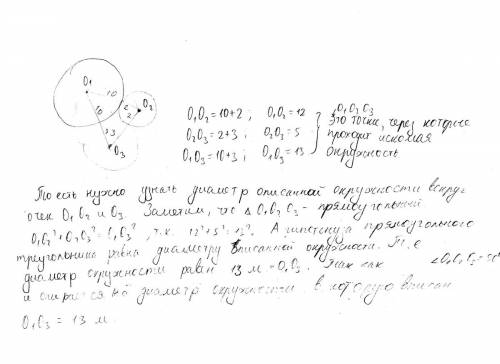 O1
10
10
O2
2
2
3
3
O3
O1O2 = 10+2 ; O1O2 = 12
O2O3 = 2+3 ; O2O3 = 5
O1O3 = 10+3 ; O1O3 = 13
O1O2O3
это точки, через которые
проходит искомая
окружность
То есть нужно узнать диаметр описанной окружности вокруг
точек O1 O2 и O3. Заметим, что Δ O1O2O3 - прямоугольный
O1O2² + O2O3² = O1O3², т.к. 12² + 5² = 13². А гипотенуза прямоугольного
треугольника равна диаметру описанной окружности. Т.е
диаметр окружности равен 13 м = O1O3. Так как ∠O1O2O3 = 90°
и опирается на диаметр окружности в которую вписан
O1O3 = 13 м.